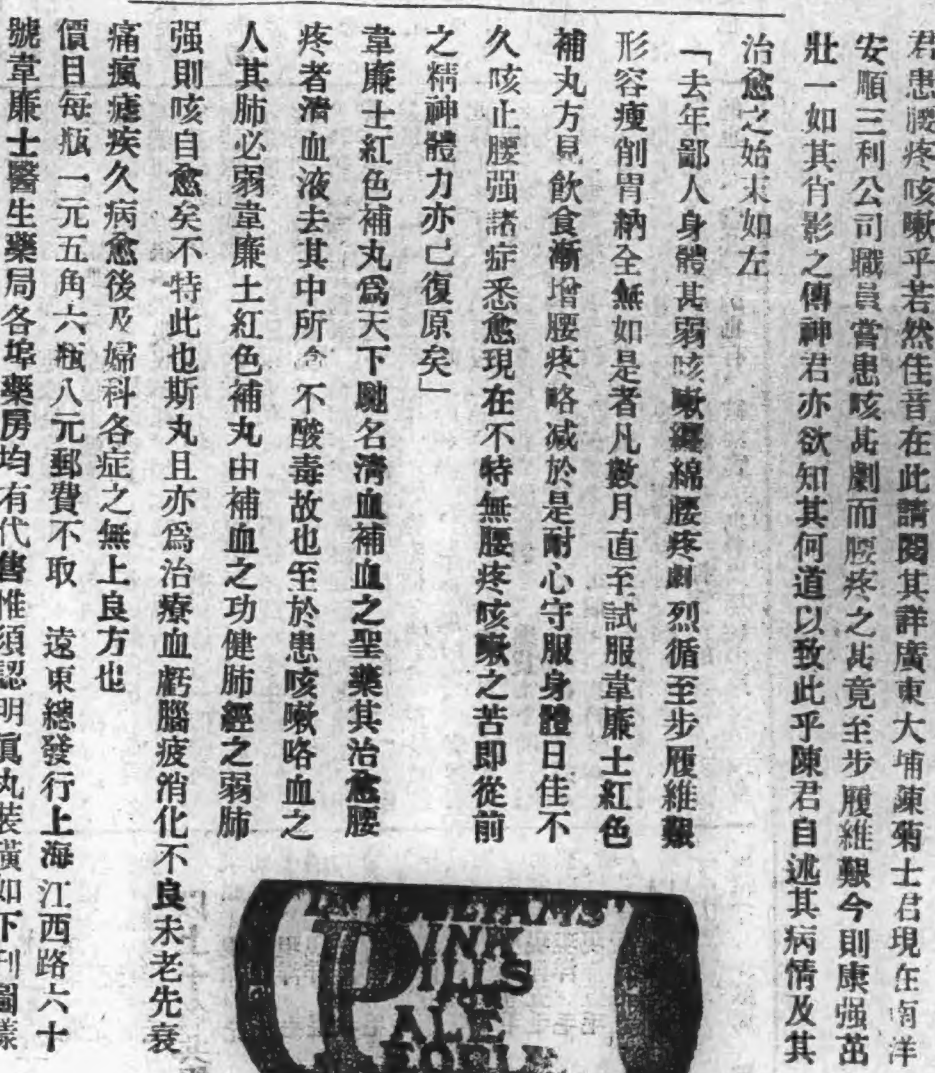 君患腰疼咳嗽乎若然佳音在此請閱其詳廣東大埔陳菊士君現在南洋
安順三利公司職員嘗患咳甚劇而腰疼之甚竟至步履維艱今則康强茁
壯一如其肖影之傳神君亦欲知其何道以致此乎陳君自述其病情及其
治愈之始末如左
「去年鄙人身體甚弱咳嗽纏綿腰疼劇烈循至步履維艱
形容瘦削胃納全無如是者凡數月直至試服韋廉士紅色
補丸方見飲食漸增腰疼略減於是耐心守服身體日佳不
久咳止腰强諸症悉愈現在不特無腰疼咳嗽之苦即從前
之精神體力亦已復原矣」
韋廉士紅色補丸爲天下馳名清血補血之聖藥其治愈腰
疼者清血液去其中所含不酸毒故也至於患咳嗽咯血之
人其肺必弱韋廉士紅色補丸由補血之功健肺經之弱肺
强則咳自愈矣不特此也斯丸且亦爲治療血虧腦疲消化不良未老先衰
痛瘋瘧疾久病愈後及婦科各症之無上良方也
價目每瓶一元五角六瓶八元郵費不取 遠東總發行上海江西路六十
號韋廉士醫生藥局各埠藥房均有代售惟須認明眞丸裝潢如下刊圖樣
WILLIAMS'
PINK
PILLS
FOR
PALE
PEOPLE